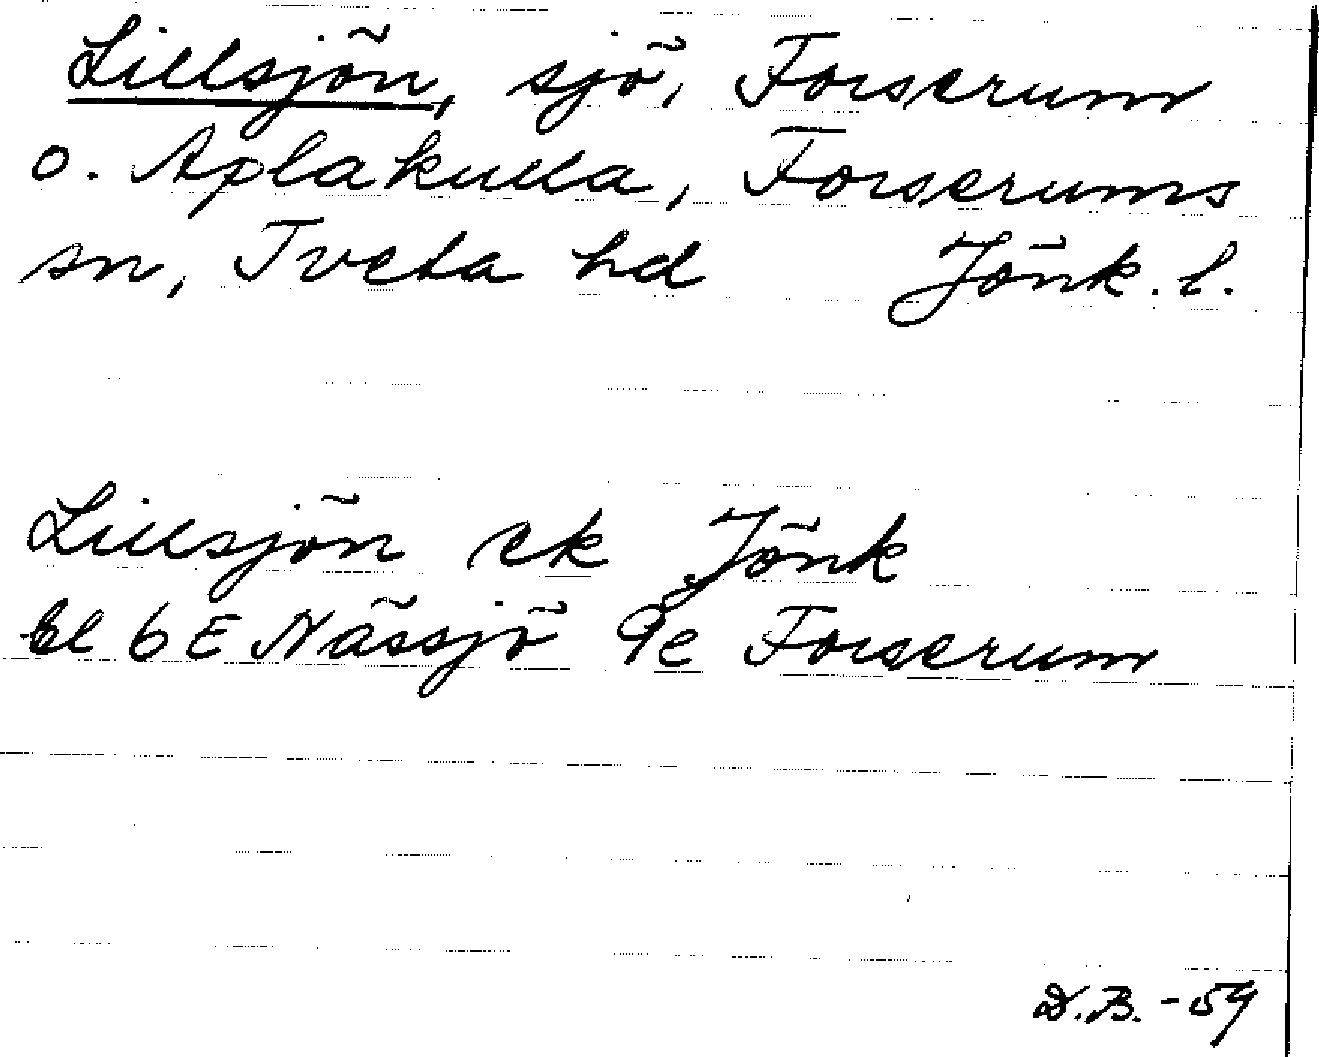 Lillsjön, sjö, Forserum
o. Aplakulla, Forserums
sn, Tveta hd Jönk. l.
Lillsjön ek Jönk
bl 6E Nässjö 9e Forserum
D.B. - 59